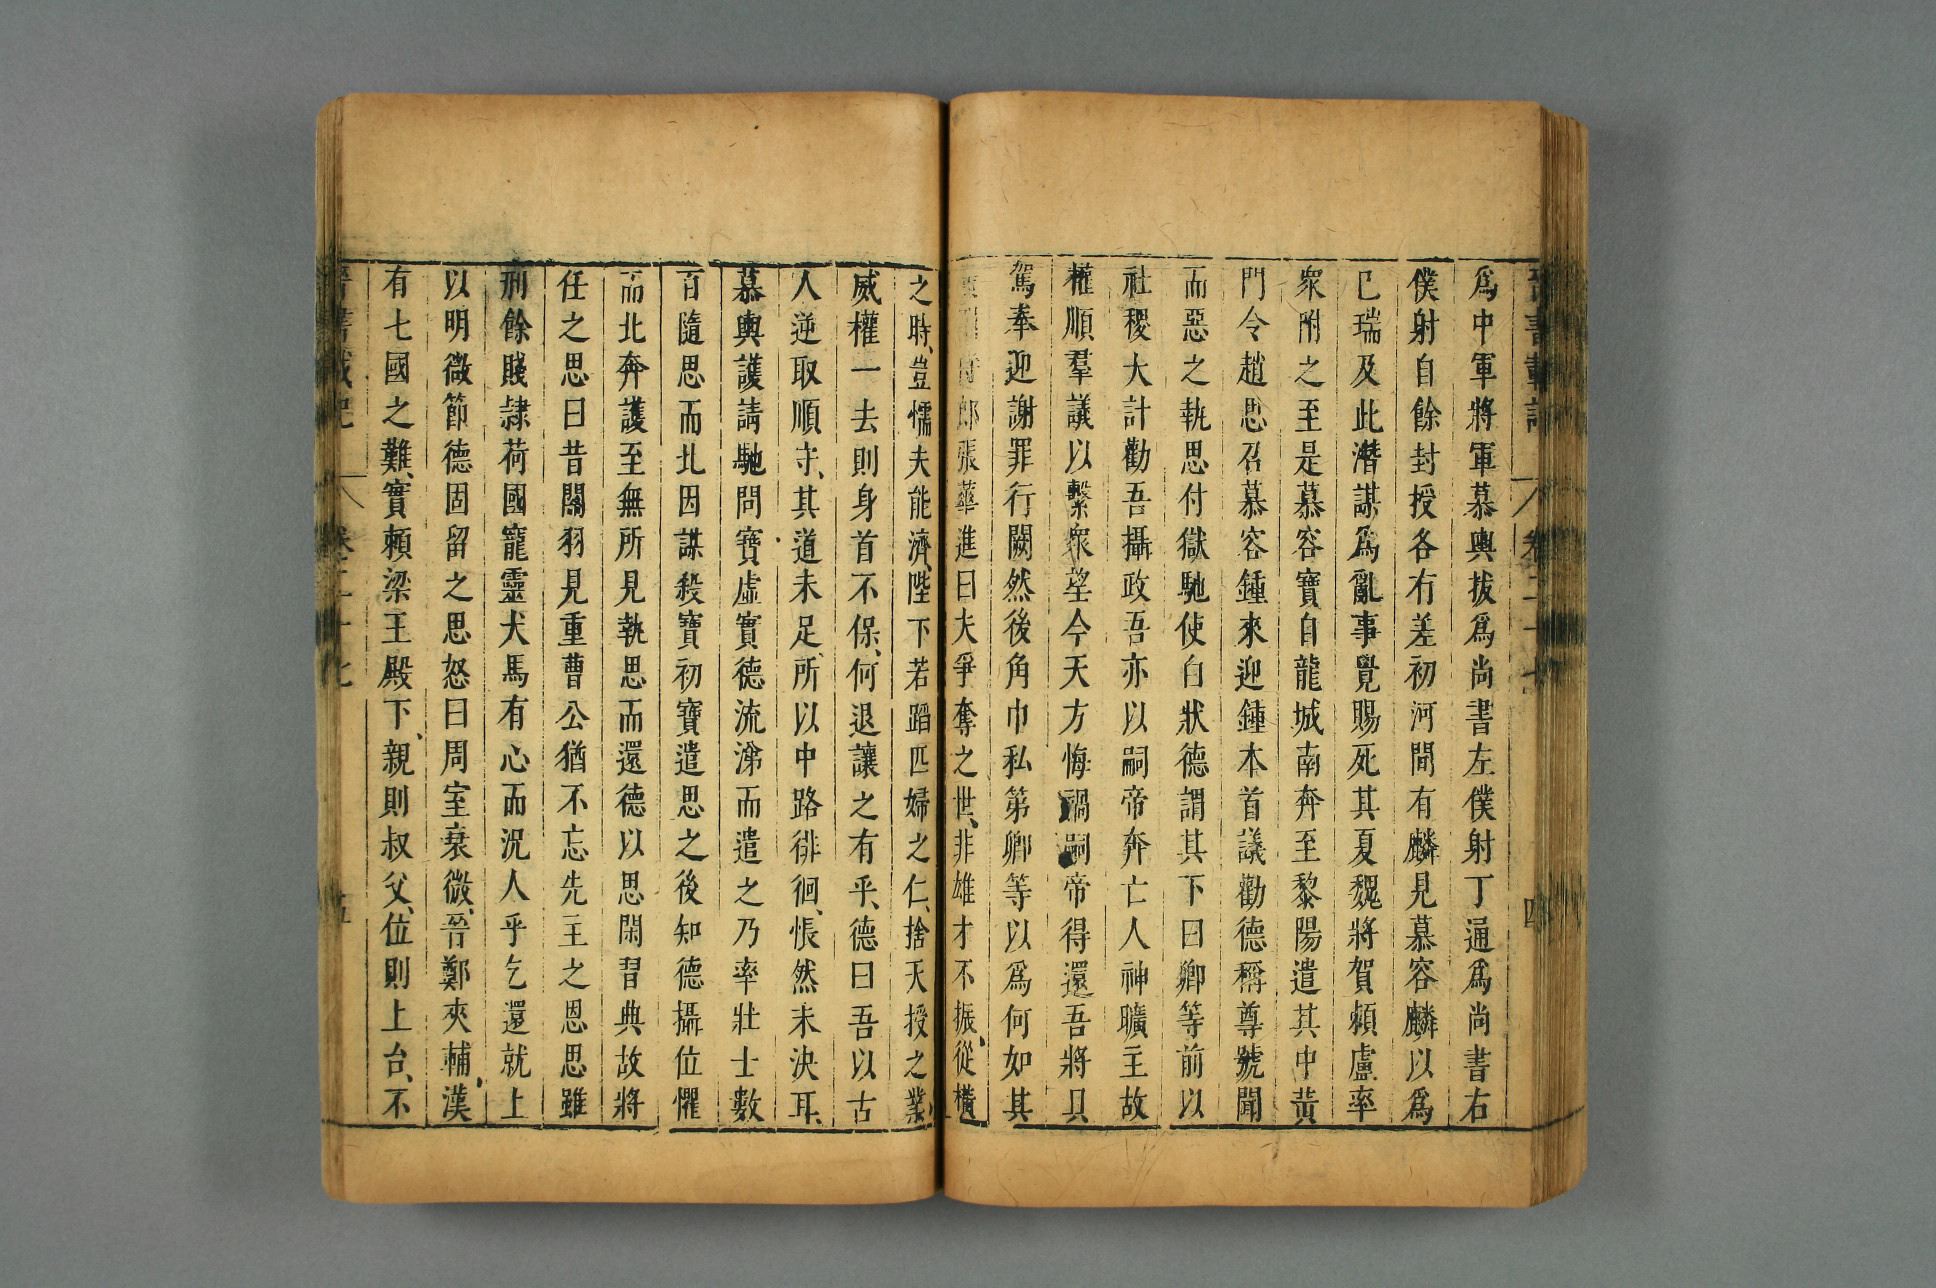 爲中軍將軍慕輿拔爲尚書左僕射丁通爲尚書右
僕射自餘封授各有差初河間有麟見慕容麟以爲
已瑞及此潛謀爲亂事覺賜死其夏魏將賀賴盧率
衆附之至是慕容寶自龍城南奔至黎陽遣其中黃
門令趙思召慕容鍾來迎鍾本首議勸德稱尊號聞
而惡之執思付獄馳使白狀德謂其下曰卿等前以
社稷大計勸吾攝政吾亦以嗣帝奔亡人神曠主故
權順羣議以繫衆望今天方悔禍嗣帝得還吾將具
駕奉迎謝罪行闕然後角巾私第卿等以爲何如其
郎張華進曰夫爭奪之世、非雄才不振、從橫
之時、豈懦夫能濟、陛下若蹈匹婦之仁、捨天授之業、
威權一去則身首不保、何退讓之有乎、德曰吾以古
人逆取順守、其道未足、所以中路徘徊、悵然未決耳、
慕輿護請馳問寶虛實德流涕而遣之乃率壯士數
百隨思而北因謀殺寶初寶遣思之後知德攝位懼
而北奔護至無所見執思而還德以思閑習典故將
任之思曰昔關羽見重曹公猶不忘先主之恩思雖
刑餘賤隷荷國寵靈犬馬有心而況人乎乞還就上
以明微節德固留之思怒曰周室衰微、晉鄭夾輔、漢
有七國之難、實賴梁王殿下、親則叔父、位則上台、不
晉書載記 卷二十七 五